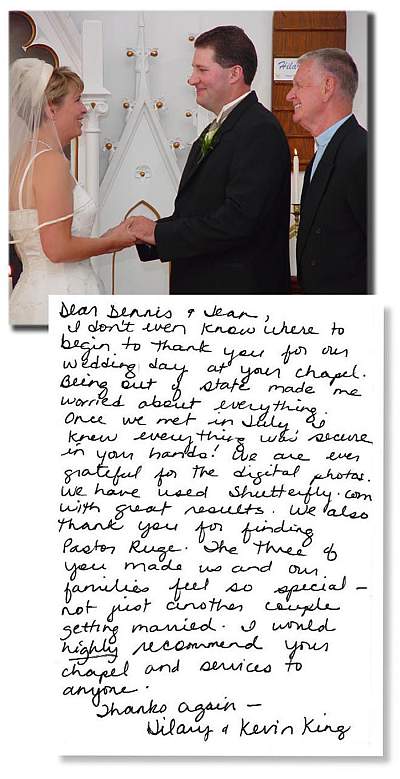 Hila
Dear Dennis & Jean,
I don't even know where to
begin to thank you for our
wedding day at your chapel.
Being out of state made me
worried about everything.
Once we met in July I
knew everything was secure
in your hands! We are ever
grateful for the digital photos.
We have used Shutterfly.com
with great results. We also
thank you for finding
Pastor Ruge. The three of
you made us and our
families feel so special –
not just another couple
getting married. I would
highly recommend your
chapel and services to
anyone.
Thanks again –
Hilary & Kevin King